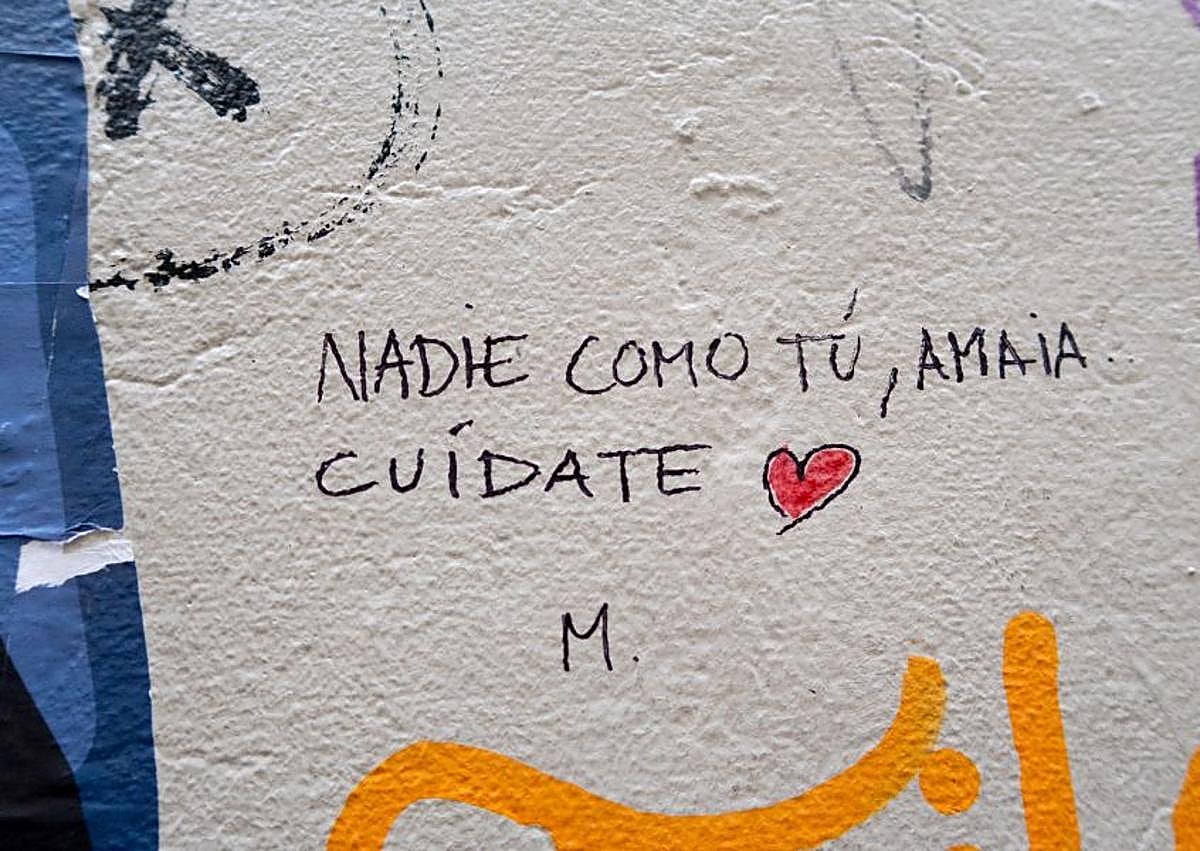 NADiE COMO TÚ, AMAiA..
CUÍDATE ❤
M.